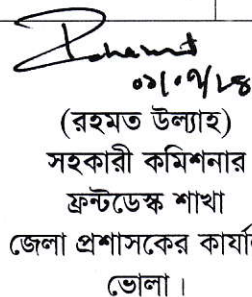 ০১/০৭/২৪
(রহমত উল্যাহ)
সহকারী কমিশনার
ফ্রন্টডেস্ক শাখা
জেলা প্রশাসকের কার্যাল
ভোলা।